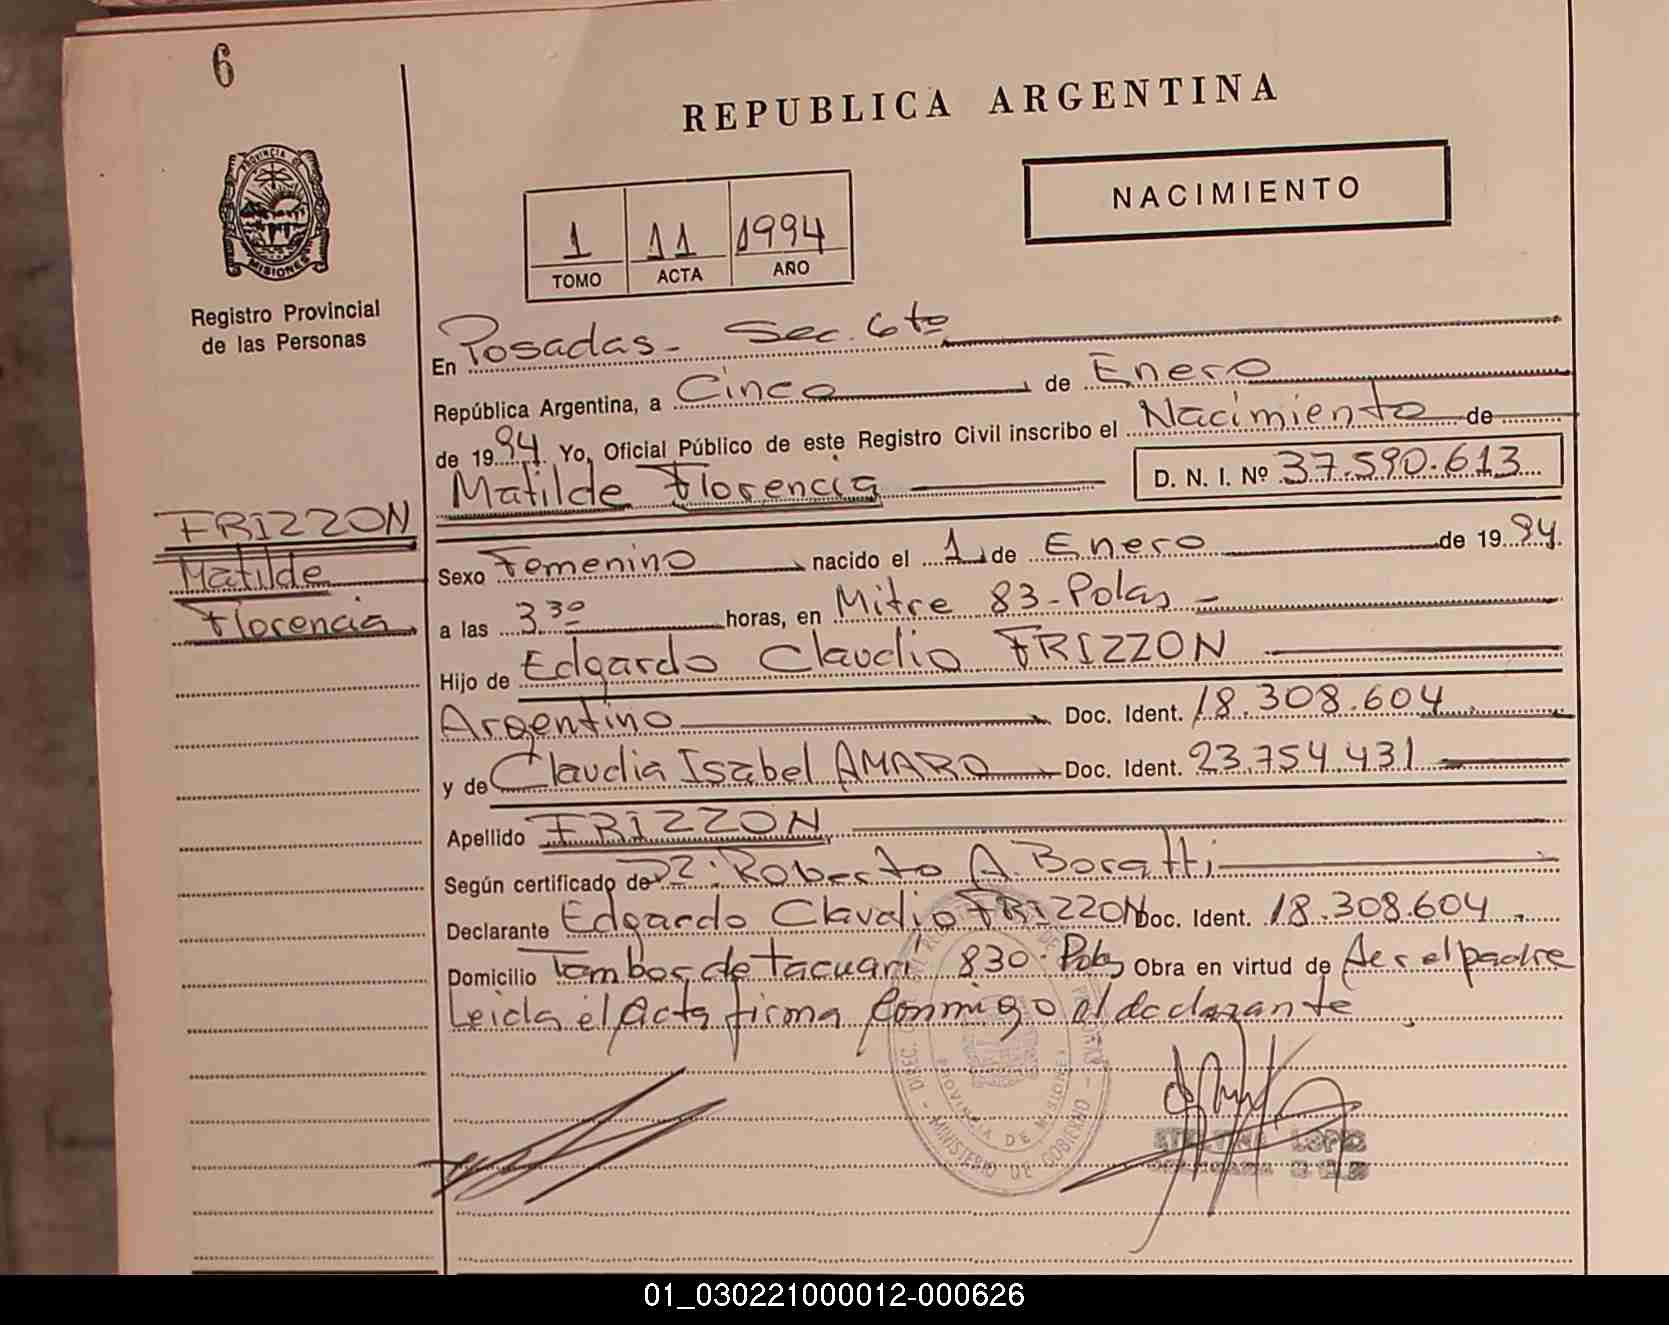 6
REPUBLICA ARGENTINA
NACIMIENTO
1 11 1994
TOMO ACTA AÑO
PROVINCIA DE
MISIONES
Registro Provincial
de las Personas
En Posadas - Sec. 6ta
República Argentina, a Cinco de Enero
de 1994. Yo, Oficial Público de este Registro Civil inscribo el Nacimiento de
Matilde Florencia D. N. I. Nº 37.590.613
FRIZZON
Matilde
Florencia
Sexo Femenino nacido el 1 de Enero de 1994.
a las 3 30 horas, en Mitre 83 - Pdas -
Hijo de Edgardo Claudio FRIZZON
Argentino Doc. Ident. 18.308.604
y de Claudia Isabel AMARO Doc. Ident. 23.754.431
Apellido FRIZZON
Según certificado de Dr. Roberto A. Boratti
Declarante Edgardo Claudio FRIZZON Doc. Ident. 18.308.604
Domicilio Tambor de Tacuari 830 - Pdas Obra en virtud de ser el padre
Leida el Acta firma conmigo el declarante
PROVINCIA DE MISIONES
MINISTERIO DE GOBIERNO
01_030221000012-000626